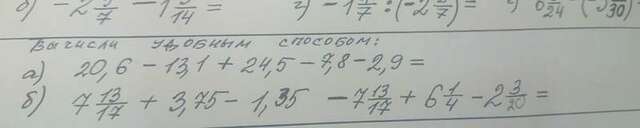 14 =
Вычисли удобным способом:
а) 20,6 - 13,1 + 24,5 - 7,8 - 2,9 =
б) 7 13/17 + 3,75 - 1,35 - 7 13/17 + 6 1/4 - 2 3/20 =